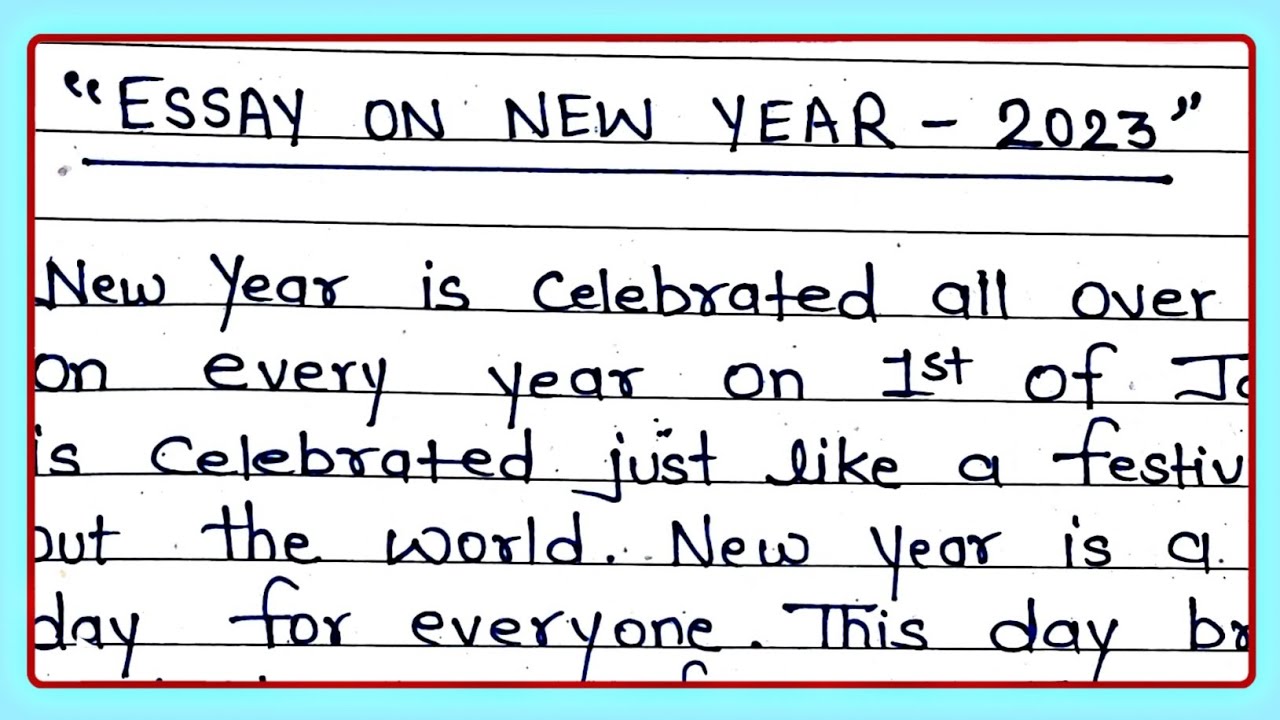 “ESSAY ON NEW YEAR - 2023”
New Year is Celebrated all over
on every year on 1st of
is Celebrated just like a
the world. New Year is a
day for everyone. This day